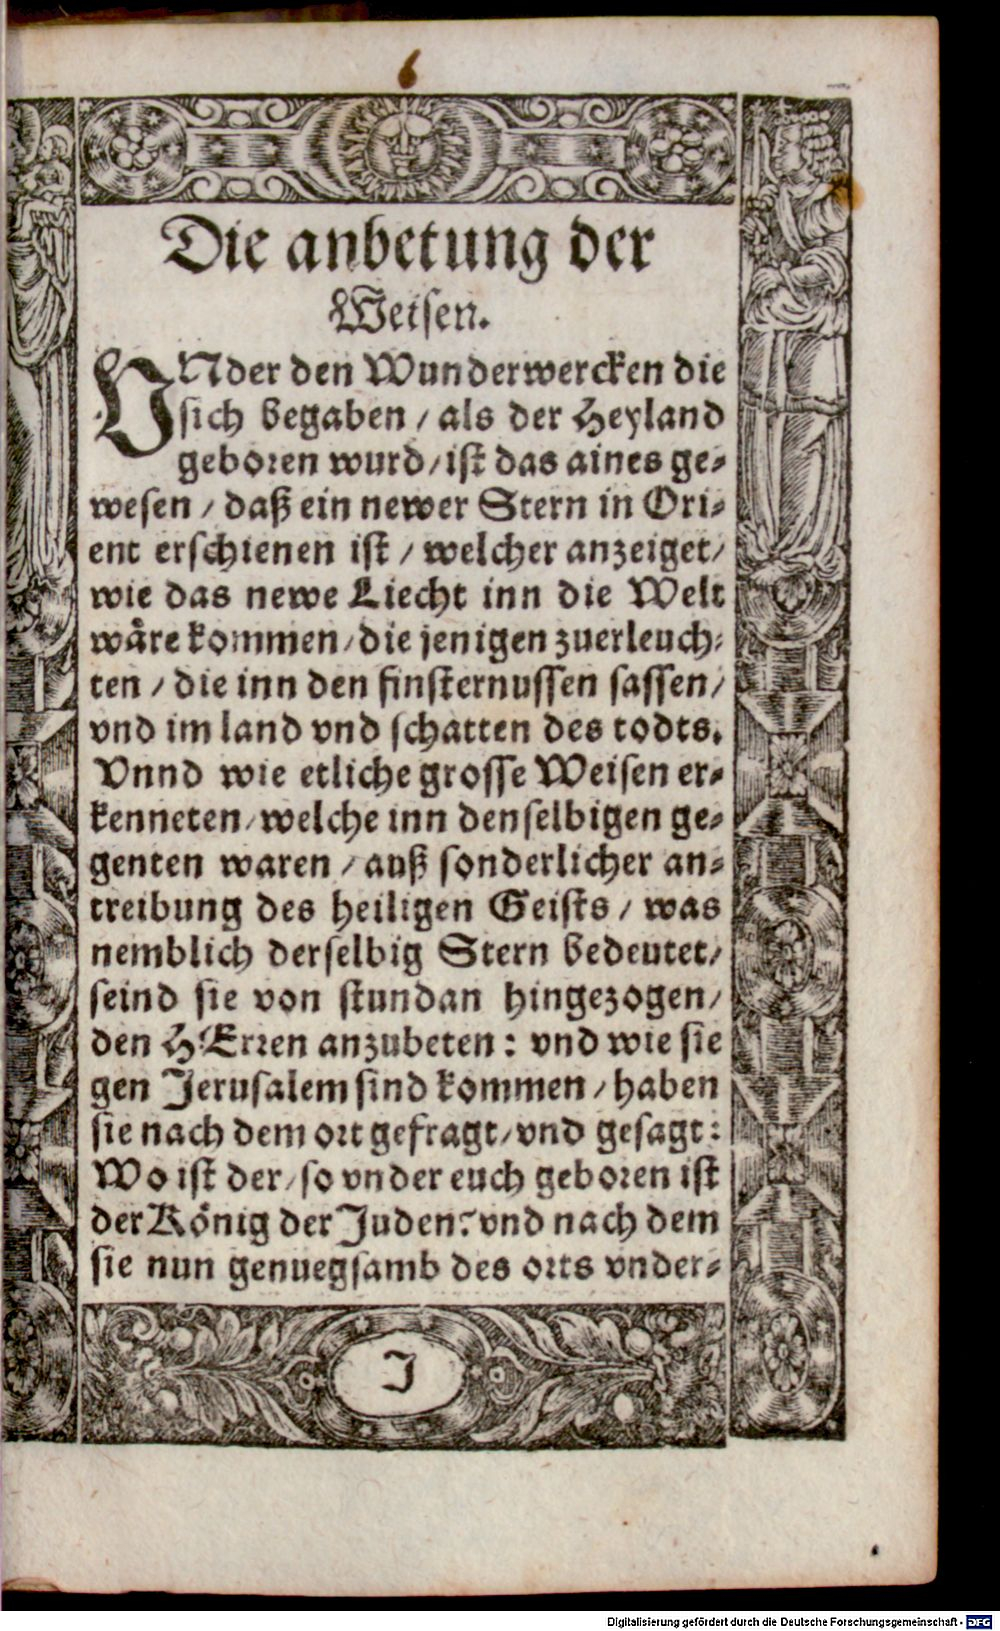 6
Die anbetung der
Weisen.
VNder den Wunderwercken die
sich begaben / als der Heyland
geboren wurd / ist das aines ge-
wesen / daß ein newer Stern in Ori-
ent erschienen ist / welcher anzeiget /
wie das newe Liecht inn die Welt
wäre kommen / die jenigen zuerleuch-
ten / die inn den finsternussen sassen /
vnd im land vnd schatten des todts.
Vnnd wie etliche grosse Weisen er-
kenneten / welche inn denselbigen ge-
genten waren / auß sonderlicher an-
treibung des heiligen Geists / was
nemblich derselbig Stern bedeutet /
seind sie von stundan hingezogen /
den HErren anzubeten : vnd wie sie
gen Jerusalem sind kommen / haben
sie nach dem ort gefragt / vnd gesagt :
Wo ist der / so vnder euch geboren ist
der König der Juden? vnd nach dem
sie nun genuegsamb des orts vnder-
J
Digitalisierung gefördert durch die Deutsche Forschungsgemeinschaft - DFG